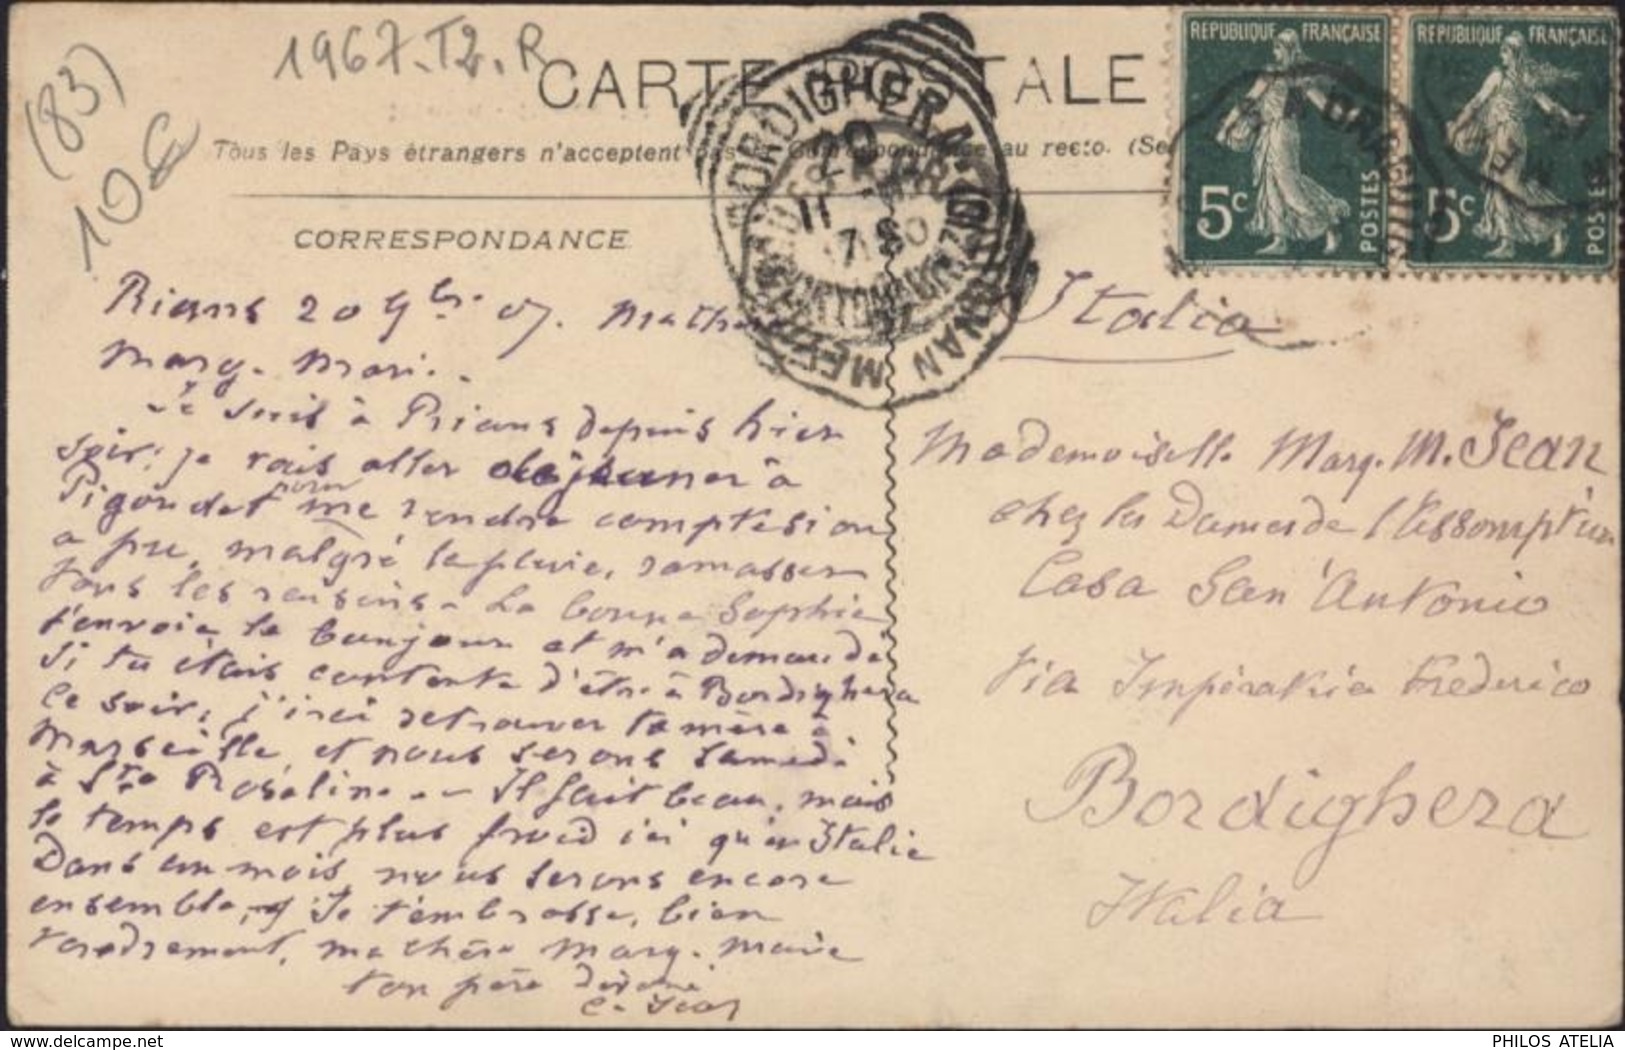 1967.T2.R
(83)
10€
CARTE POSTALE
Tous les Pays étrangers n'acceptent pas la Correspondance au recto. (Se
CORRESPONDANCE
REPUBLIQUE FRANÇAISE
5c POSTES
REPUBLIQUE FRANÇAISE
5c POSTES
BORDIGHERA
Rians 20 9bre 07. Ma
Marg. Mari..
Je suis à Rians depuis hier
soir: je vais aller déjeuner à
Pigoudet pour me rendre compte si on
a pu, malgré la pluie, ramasser
tous les raisins. La bonne Sophie
t'envoie le bonjour et m'a demandé
si tu étais contente d'être à Bordighera
Ce soir, j'irai retrouver ta mère à
Marseille, et nous serons samedi
à Ste Roseline. - Il fait beau, mais
le temps est plus froid ici qu'en Italie
Dans un mois nous serons encore
ensemble, Je t'embrasse, bien
tendrement, ma chère Marg. Marie
ton père dévoué
C. Jean
Italia
Mademoiselle Marg. M. Jean
chez les Dames de l'Assomption
Casa San Antonio
Via Impératrice Frederico
Bordighera
Italia
PHILOS ATELIA
www.delcampe.net